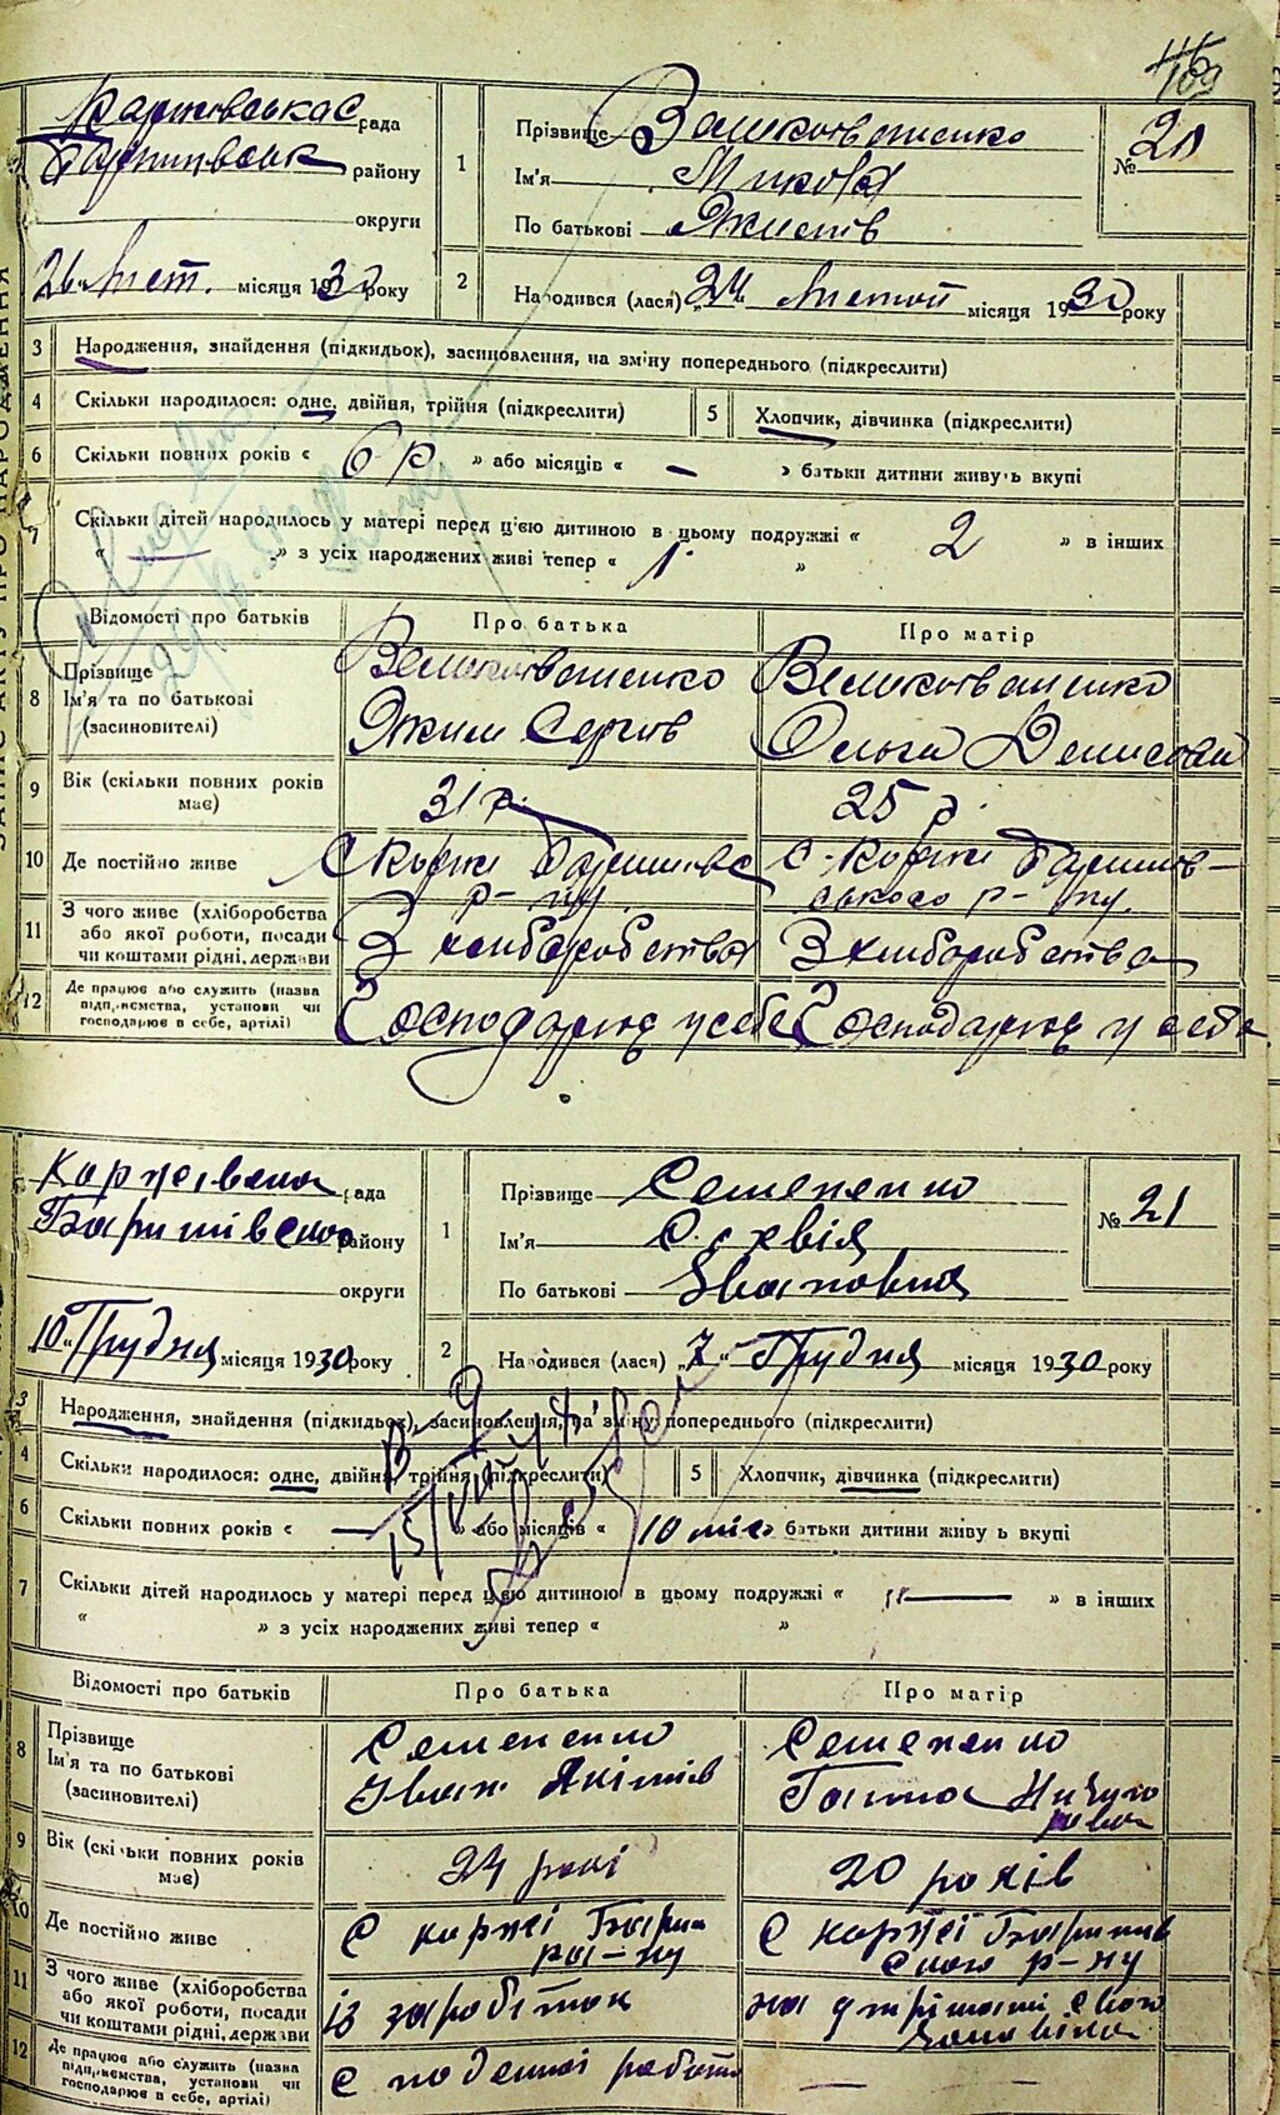 109
Коржівська с рада
району
округи
26 " Лист. місяця 1930 року
1
Прізвище
Ім'я Микола
По батькові Якимів
№ 20
2
Народився (лася) „24" Листоп місяця 1930 року
ЗАПИС АКТУ ПРО НАРОДЖЕННЯ
3 Народження, знайдення (підкидьок), засиновлення, на зміну попереднього (підкреслити)
4 Скільки народилося: одне, двійня, трійня (підкреслити)
5 Хлопчик, дівчинка (підкреслити)
6 Скільки повних років « 6 р » або місяців « — » батьки дитини живуть вкупі
7 Скільки дітей народилось у матері перед цією дитиною в цьому подружжі « 2 » в інших
« — » з усіх народжених живі тепер « 1 »
Відомості про батьків Про батька Про матір
8 Прізвище Великоіваненко Великоіваненко
Ім'я та по батькові (засиновителі) Яким Сергіїв Ольга Денисова
9 Вік (скільки повних років має) 31 р. 25 р.
10 Де постійно живе С Коржі Баришівс с. Коржі Баришів-
р-ну. ського р-ну.
11 З чого живе (хліборобства або якої роботи, посади чи коштами рідні, держави З хліборобства З хліборобства
12 Де працює або служить (назва підприємства, установи чи господарює в себе, артілі) Господарює у себе Господарює у себе
Коржівська рада
Баришівсько району
округи
10 " Грудня місяця 1930 року
1
Прізвище Семененко
Ім'я
По батькові Івановна
№ 21
2
Народився (лася) „7" Грудня місяця 1930 року
3 Народження, знайдення (підкидьок), засиновлення, на зміну попереднього (підкреслити)
4 Скільки народилося: одне, двійня, трійня (підкреслити)
5 Хлопчик, дівчинка (підкреслити)
6 Скільки повних років « — » або місяців « 10 міс » батьки дитини живуть вкупі
7 Скільки дітей народилось у матері перед цією дитиною в цьому подружжі « — » в інших
« » з усіх народжених живі тепер « »
Відомості про батьків Про батька Про матір
8 Прізвище Семененко Семененко
Ім'я та по батькові (засиновителі) Іван Якимів Ганна
9 Вік (скільки повних років має) 24 рокі 20 років
10 Де постійно живе С коржі Бариш С коржі Баришів
ра-ну ского р-ну
11 З чого живе (хліборобства або якої роботи, посади чи коштами рідні, держави із заробіток на утріманні свого
чоловіка
12 Де працює або служить (назва підприємства, установи чи господарює в себе, артілі) с поденної работи — —